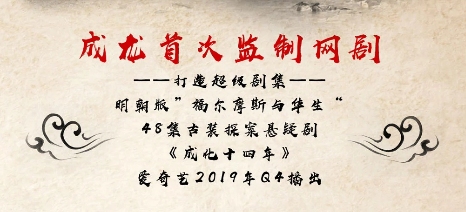 成龙首次监制网剧
——打造超级剧集——
明朝版”福尔摩斯与华生“
48集古装探案悬疑剧
《成化十四年》
爱奇艺2019年Q4播出